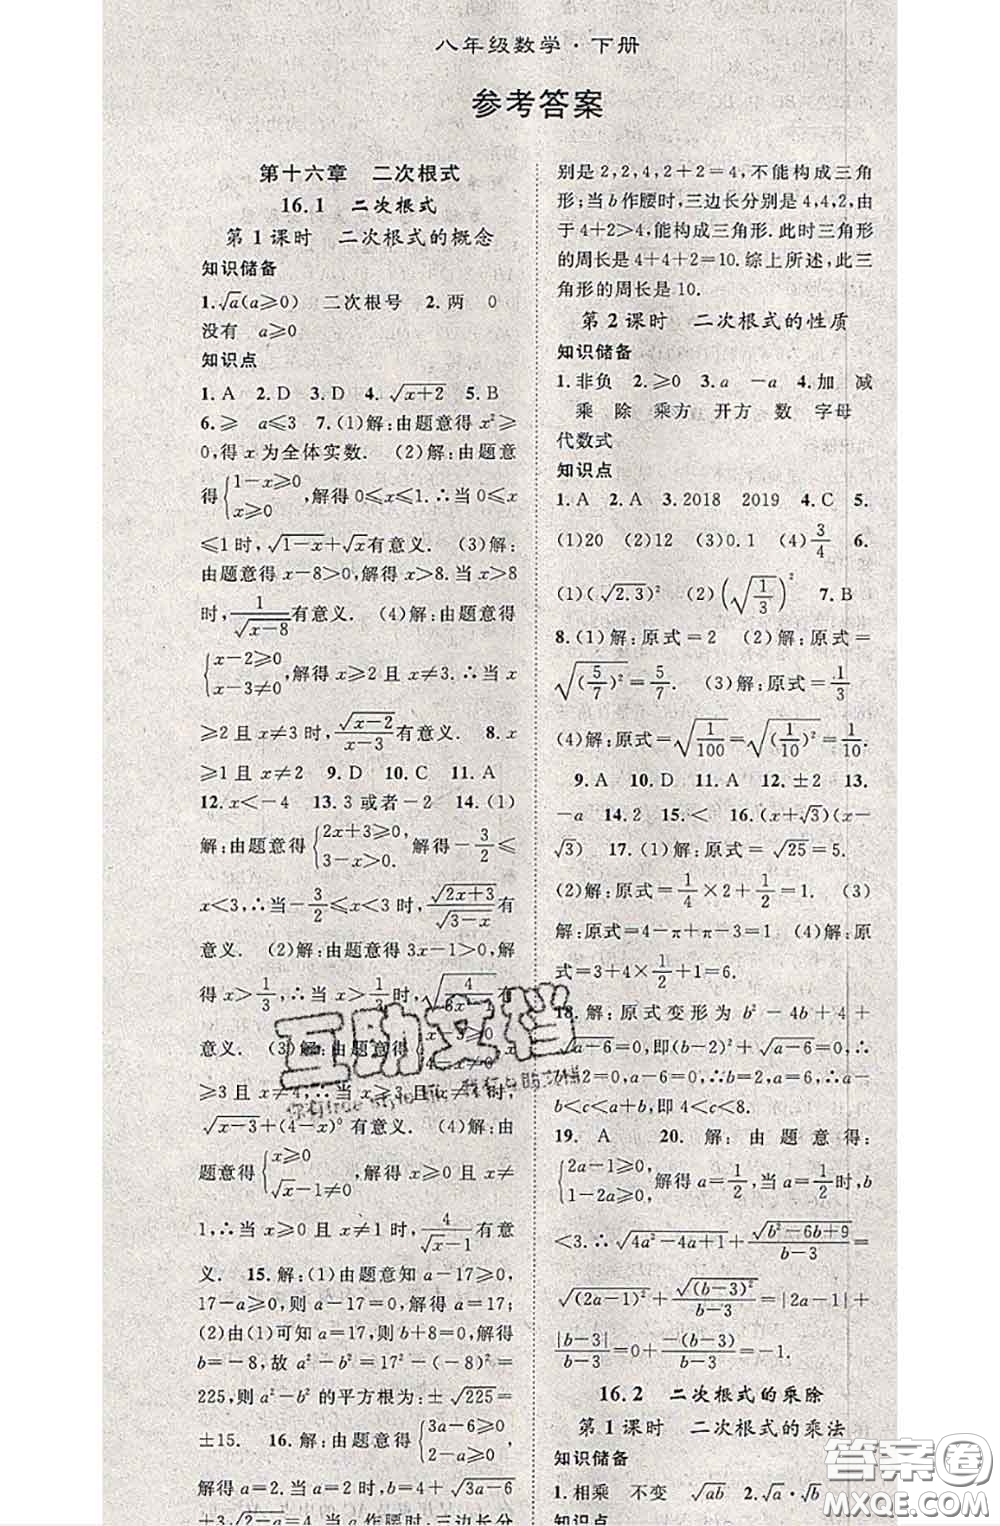 八年级数学·下册
参考答案
第十六章 二次根式
16.1 二次根式
第1课时 二次根式的概念
知识储备
1.√a(a≥0) 二次根号 2.两 0
没有 a≥0
知识点
1.A 2.D 3.D 4.√(x+2) 5.B
6.≥ a≤3 7.(1)解:由题意得 x²≥
0,得 x 为全体实数. (2)解:由题意
得{1-x≥0 x≥0,解得 0≤x≤1.∴当 0≤x
≤1时,√(1-x)+√x有意义. (3)解:
由题意得 x-8>0,解得 x>8.当 x>8
时,1/√(x-8)有意义. (4)解:由题意得
{x-2≥0 x-3≠0,解得 x≥2 且 x≠3.∴当 x
≥2 且 x≠3 时,√(x-2)/(x-3)有意义. 8.x
≥1且 x≠2 9.D 10.C 11.A
12.x<-4 13.3 或者-2 14.(1)
解:由题意得{2x+3≥0, 3-x>0. 解得-3/2≤
x<3,∴当-3/2≤x<3 时,√(2x+3)/√(3-x)有
意义. (2)解:由题意得 3x-1>0,解
得 x>1/3,∴当 x>1/3时,
意义. (3)解:由题意得
≥3 且 x
√(x-3)+(4-x)⁰ 有意义. (4)解:由
题意得{x≥0 √x-1≠0,解得 x≥0 且 x≠
1,∴当 x≥0 且 x≠1 时,4/(√x-1)有意
义. 15.解:(1)由题意知 a-17≥0,
17-a≥0,则 a-17=0,解得 a=17;
(2)由(1)可知 a=17,则 b+8=0,解得
b=-8,故 a²-b²=17²-(-8)²=
225,则 a²-b² 的平方根为:±√225=
±15. 16.解:由题意得{3a-6≥0, 2-a≥0,
解得 a=2,当 a=2 时,b=4+√(3a-6)
+3√(2-a)=4,当 a 作腰时,三边长分
别是 2,2,4,2+2=4,不能构成三角
形;当 b 作腰时,三边长分别是 4,4,2,由
于 4+2>4,能构成三角形.此时三角形
的周长是 4+4+2=10.综上所述,此三
角形的周长是 10.
第2课时 二次根式的性质
知识储备
1.非负 2.≥0 3.a -a 4.加 减
乘 除 乘方 开方 数 字母
代数式
知识点
1.A 2.A 3.2018 2019 4.C 5.
(1)20 (2)12 (3)0.1 (4)3/4 6.
(1)(√2.3)² (2)(√(1/3))² 7.B
8.(1)解:原式=2 (2)解:原式=
√(5/7)²=5/7. (3)解:原式=1/3
(4)解:原式=√(1/100)=√(1/10)²=1/10.
9.A 10.D 11.A 12.±2 13.
-a 14.2 15.< 16.(x+√3)(x-
√3) 17.(1)解:原式=√25=5.
(2)解:原式=1/4×2+1/2=1. (3)
解:原式=4-π+π-3=1. (4)解:原
式=3+4×1/2+1=6.
18.解:原式变形为 b²-4b+4+
√(a-6)=0,即(b-2)²+√(a-6)=0,∴a-
6=0,b-2=0,∴a=6,b=2,∴a-
b<c<a+b,即 4<c<8.
19.A 20.解:由题意得:
{2a-1≥0, 1-2a≥0,解得 a=1/2,当 a=1/2时,b
<3.∴√(4a²-4a+1)+√(b²-6b+9)/(b-3)=
√(2a-1)²+√(b-3)²/(b-3)=|2a-1|+
|b-3|/(b-3)=0+-(b-3)/(b-3)=-1.
16.2 二次根式的乘除
第1课时 二次根式的乘法
知识储备
1.相乘 不变 √ab 2.√a·√b
知识点
互助文档
答案圈
MXQE.COM